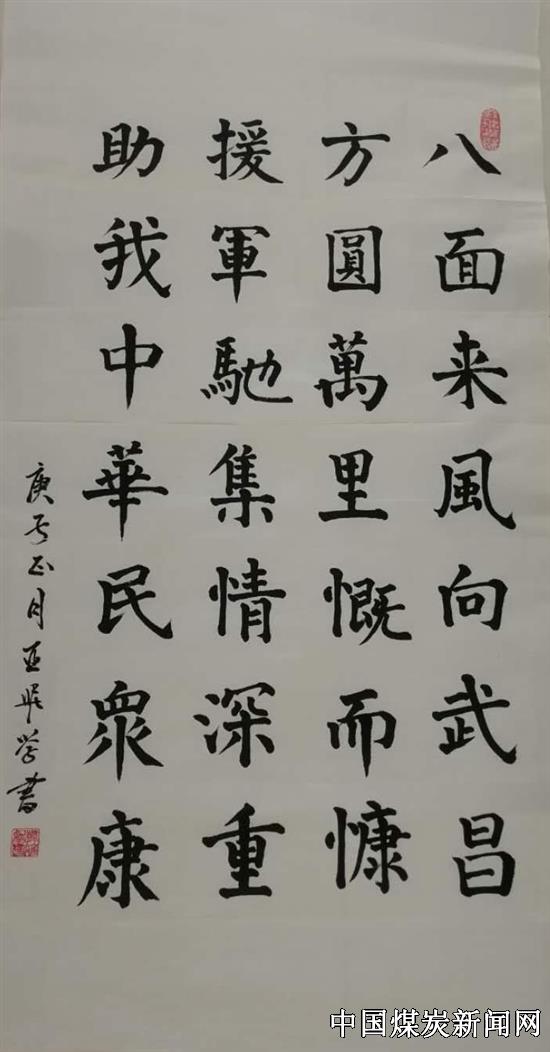 八面来風向武昌
方圓萬里慨而慷
援軍馳集情深重
助我中華民衆康
庚子正月亚飛学書
中国煤炭新闻网